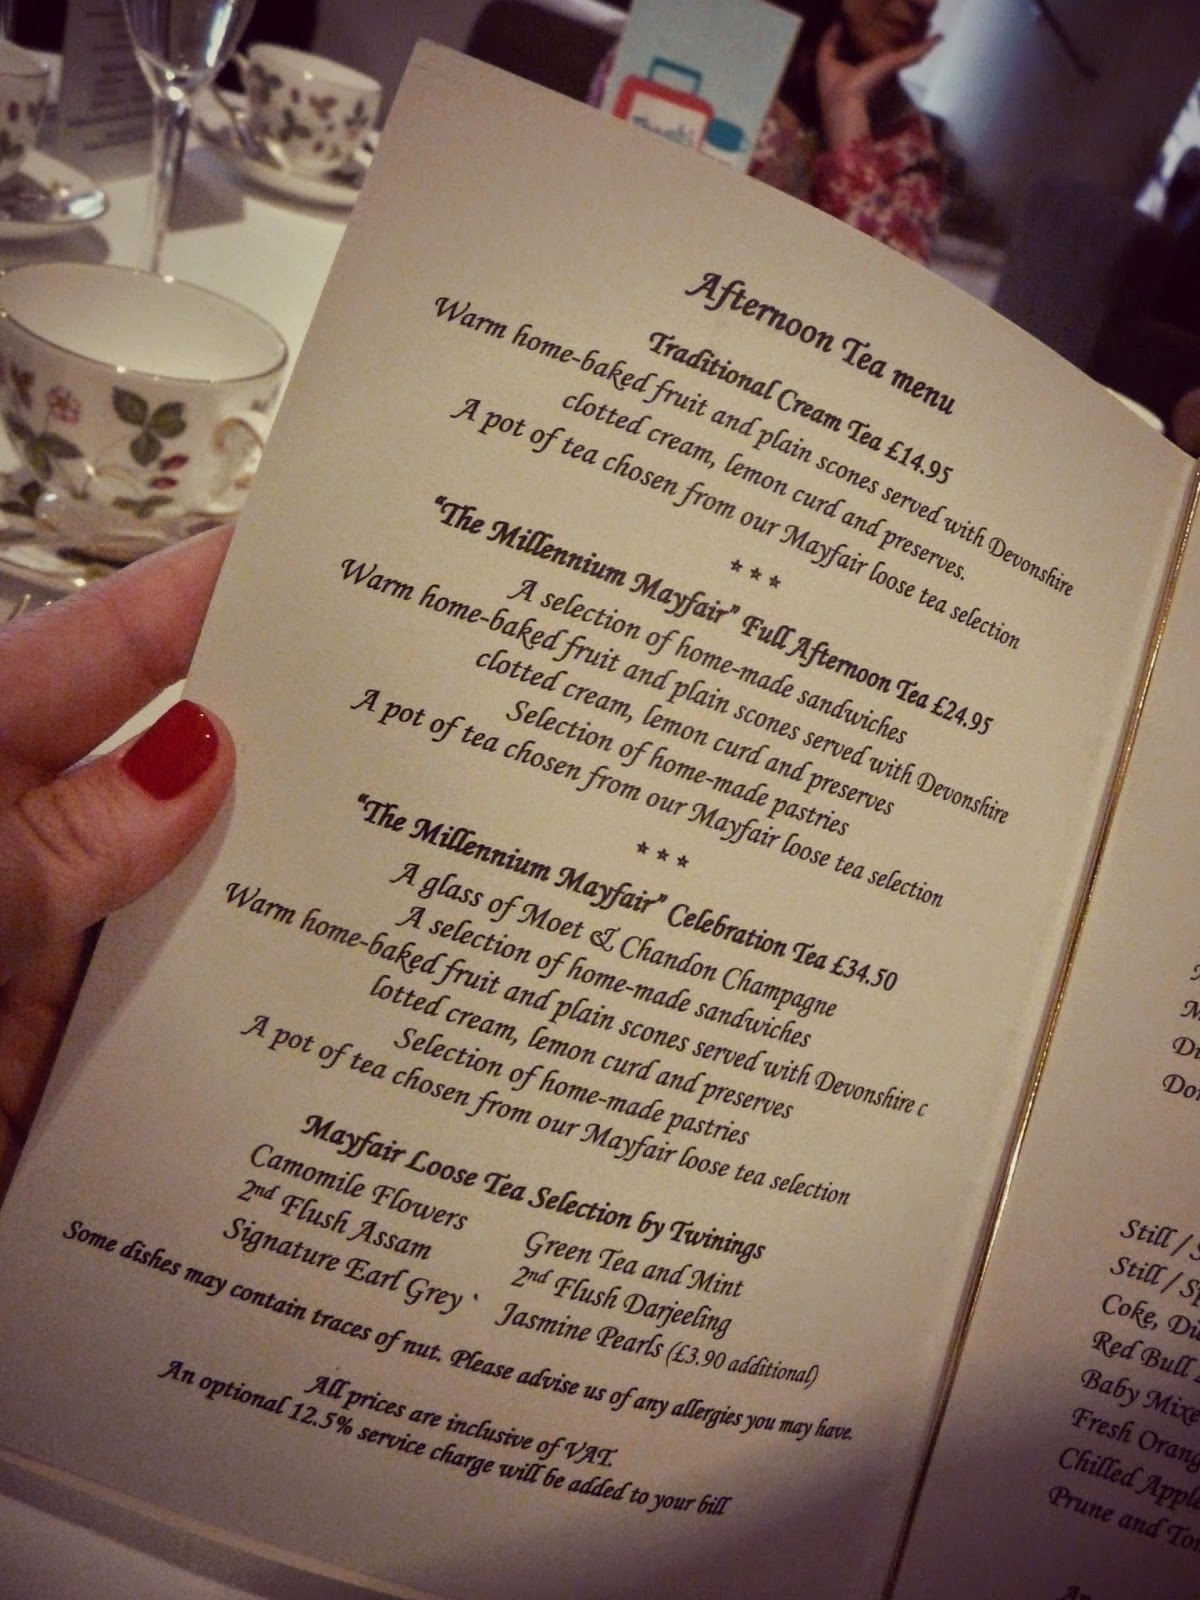 Afternoon Tea menu
Traditional Cream Tea £14.95
Warm home-baked fruit and plain scones served with Devonshire
clotted cream, lemon curd and preserves.
A pot of tea chosen from our Mayfair loose tea selection
***
“The Millennium Mayfair” Full Afternoon Tea £24.95
A selection of home-made sandwiches
Warm home-baked fruit and plain scones served with Devonshire
clotted cream, lemon curd and preserves
Selection of home-made pastries
A pot of tea chosen from our Mayfair loose tea selection
***
“The Millennium Mayfair” Celebration Tea £34.50
A glass of Moet & Chandon Champagne
A selection of home-made sandwiches
Warm home-baked fruit and plain scones served with Devonshire c
lotted cream, lemon curd and preserves
Selection of home-made pastries
A pot of tea chosen from our Mayfair loose tea selection
Mayfair Loose Tea Selection by Twinings
Camomile Flowers Green Tea and Mint
2nd Flush Assam 2nd Flush Darjeeling
Signature Earl Grey ` Jasmine Pearls (£3.90 additional)
Some dishes may contain traces of nut. Please advise us of any allergies you may have.
All prices are inclusive of VAT.
An optional 12.5% service charge will be added to your bill
Still /
Still /
Coke,
Red Bull
Baby
Fresh
Chilled
Prune and